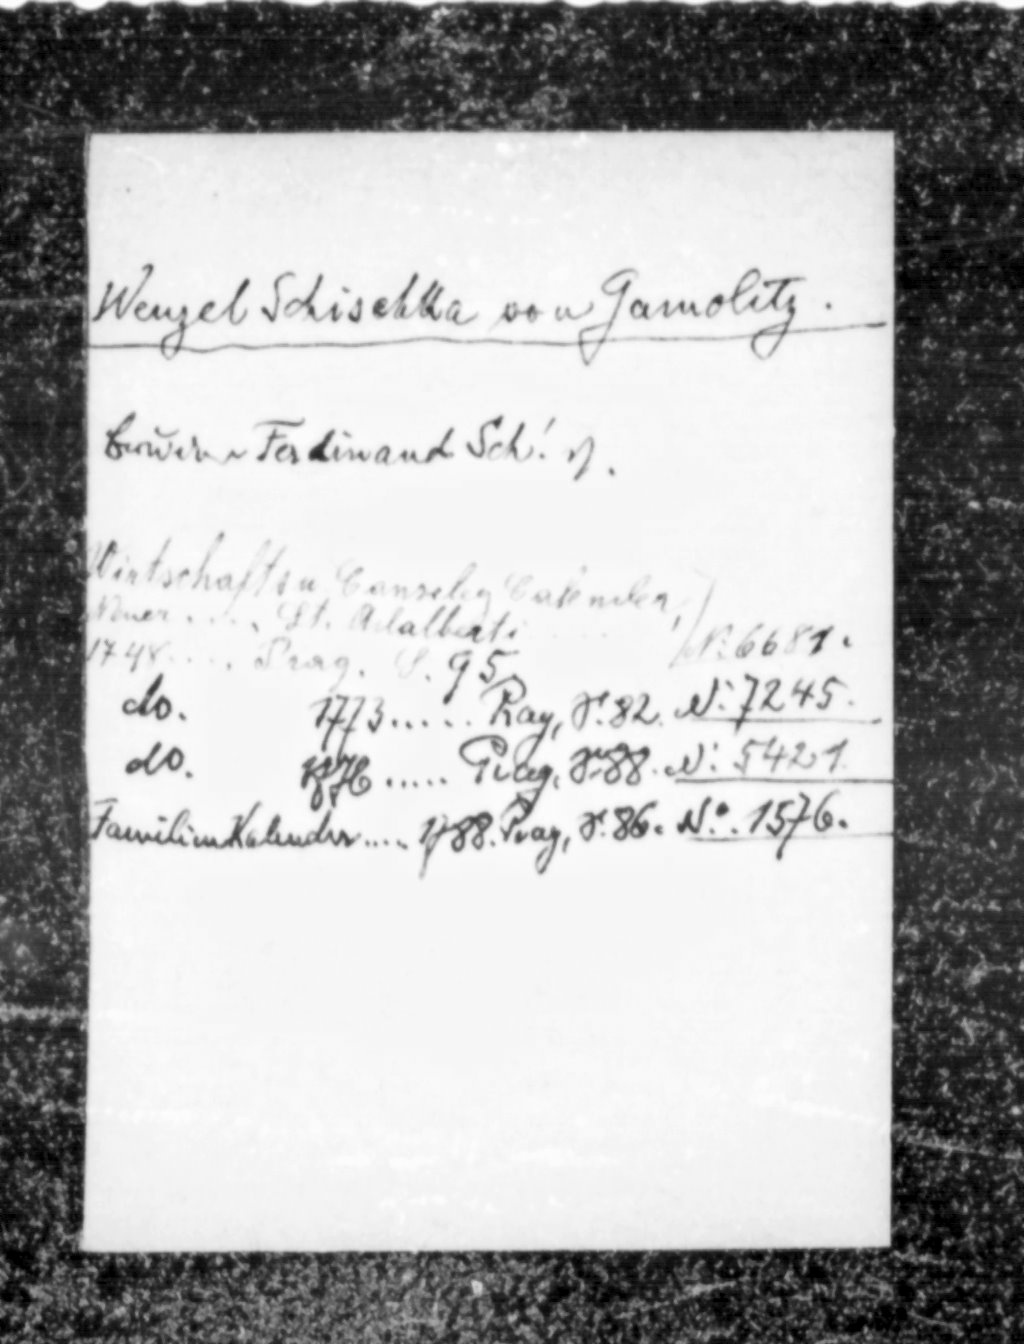 Wenzel Schischka von Gamolitz.
Ferdinand Sch!
Wirtschafts u Canzeley Calender,
Neuer ..... St. Adalberti .....
1748 ..... Prag. S. 95 N: 6681.
do. 1773 ..... Prag, S. 82. N: 7245.
do. 1776 ..... Prag, S. 88. N: 5421.
Familien Kalender .... 1788. Prag, S. 86. No. 1576.